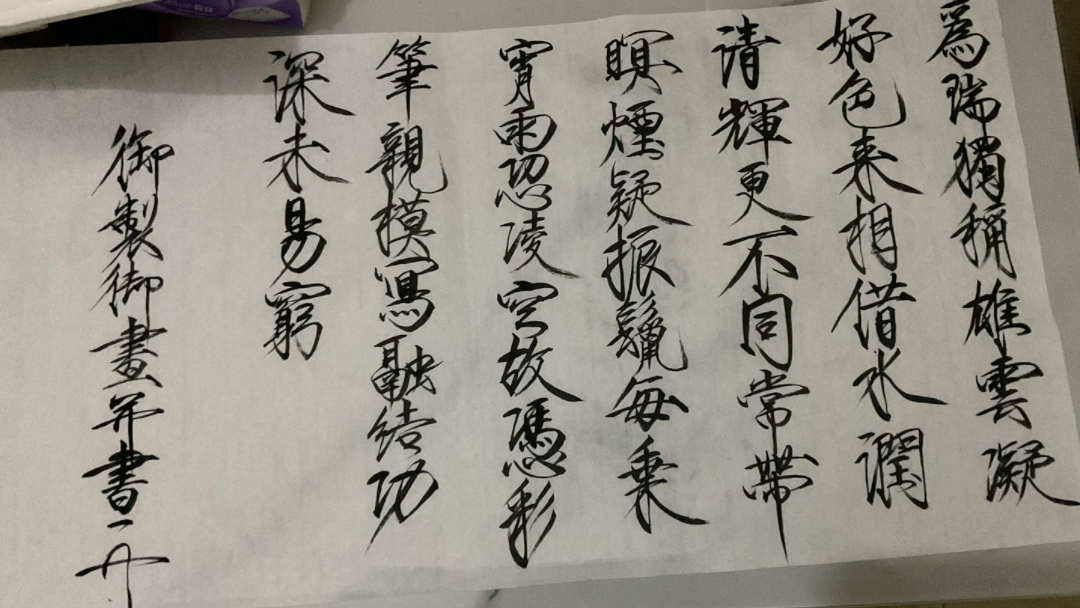 爲瑞獨稱雄雲凝
好色來相借水潤
请輝更不同常帶
瞑煙疑振鬣每乗
宵雨恐凌空故憑彩
筆親模寫融结功
深未易窮
御製御畫并書一